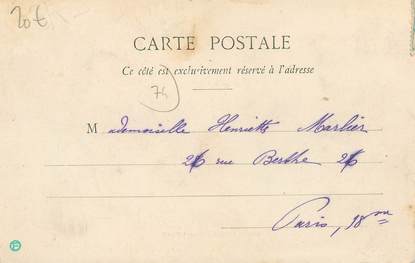 20€
CARTE POSTALE
Ce côté est exclusivement réservé à l'adresse
74
Mademoiselle Henriette Marlier
26 rue Berthe 26
Paris, 18me